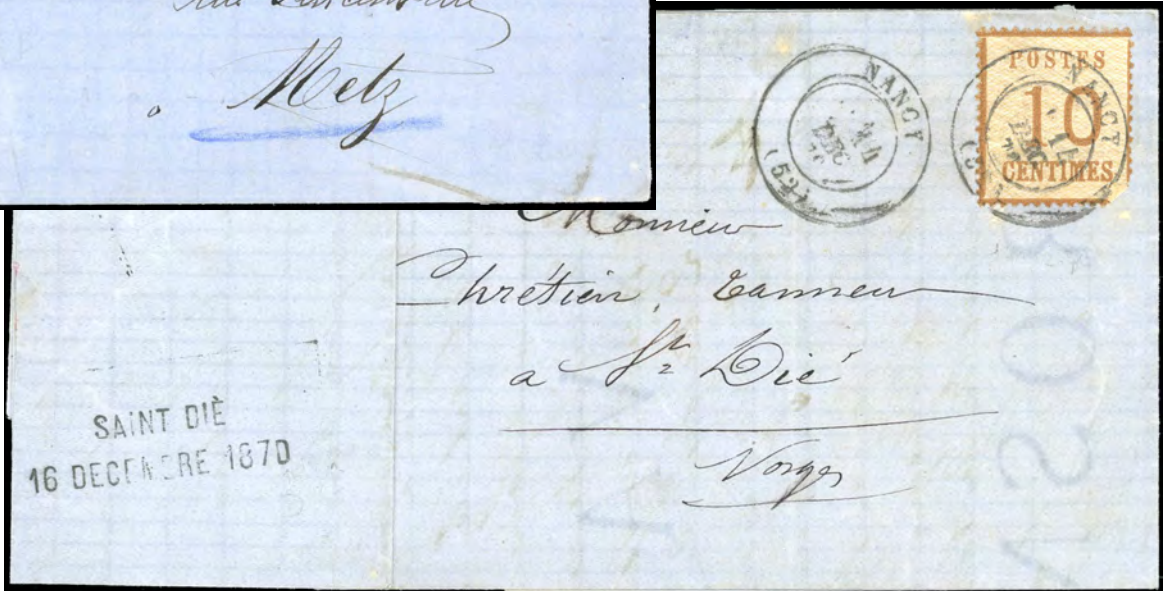 rue
à Metz
NANCY
14
DEC
70
(52)
POSTES
10
CENTIMES
NANCY
14
DEC
Monsieur
Chrétien, Tanneur
a St Dié
Vosges
SAINT DIÈ
16 DECEMBRE 1870